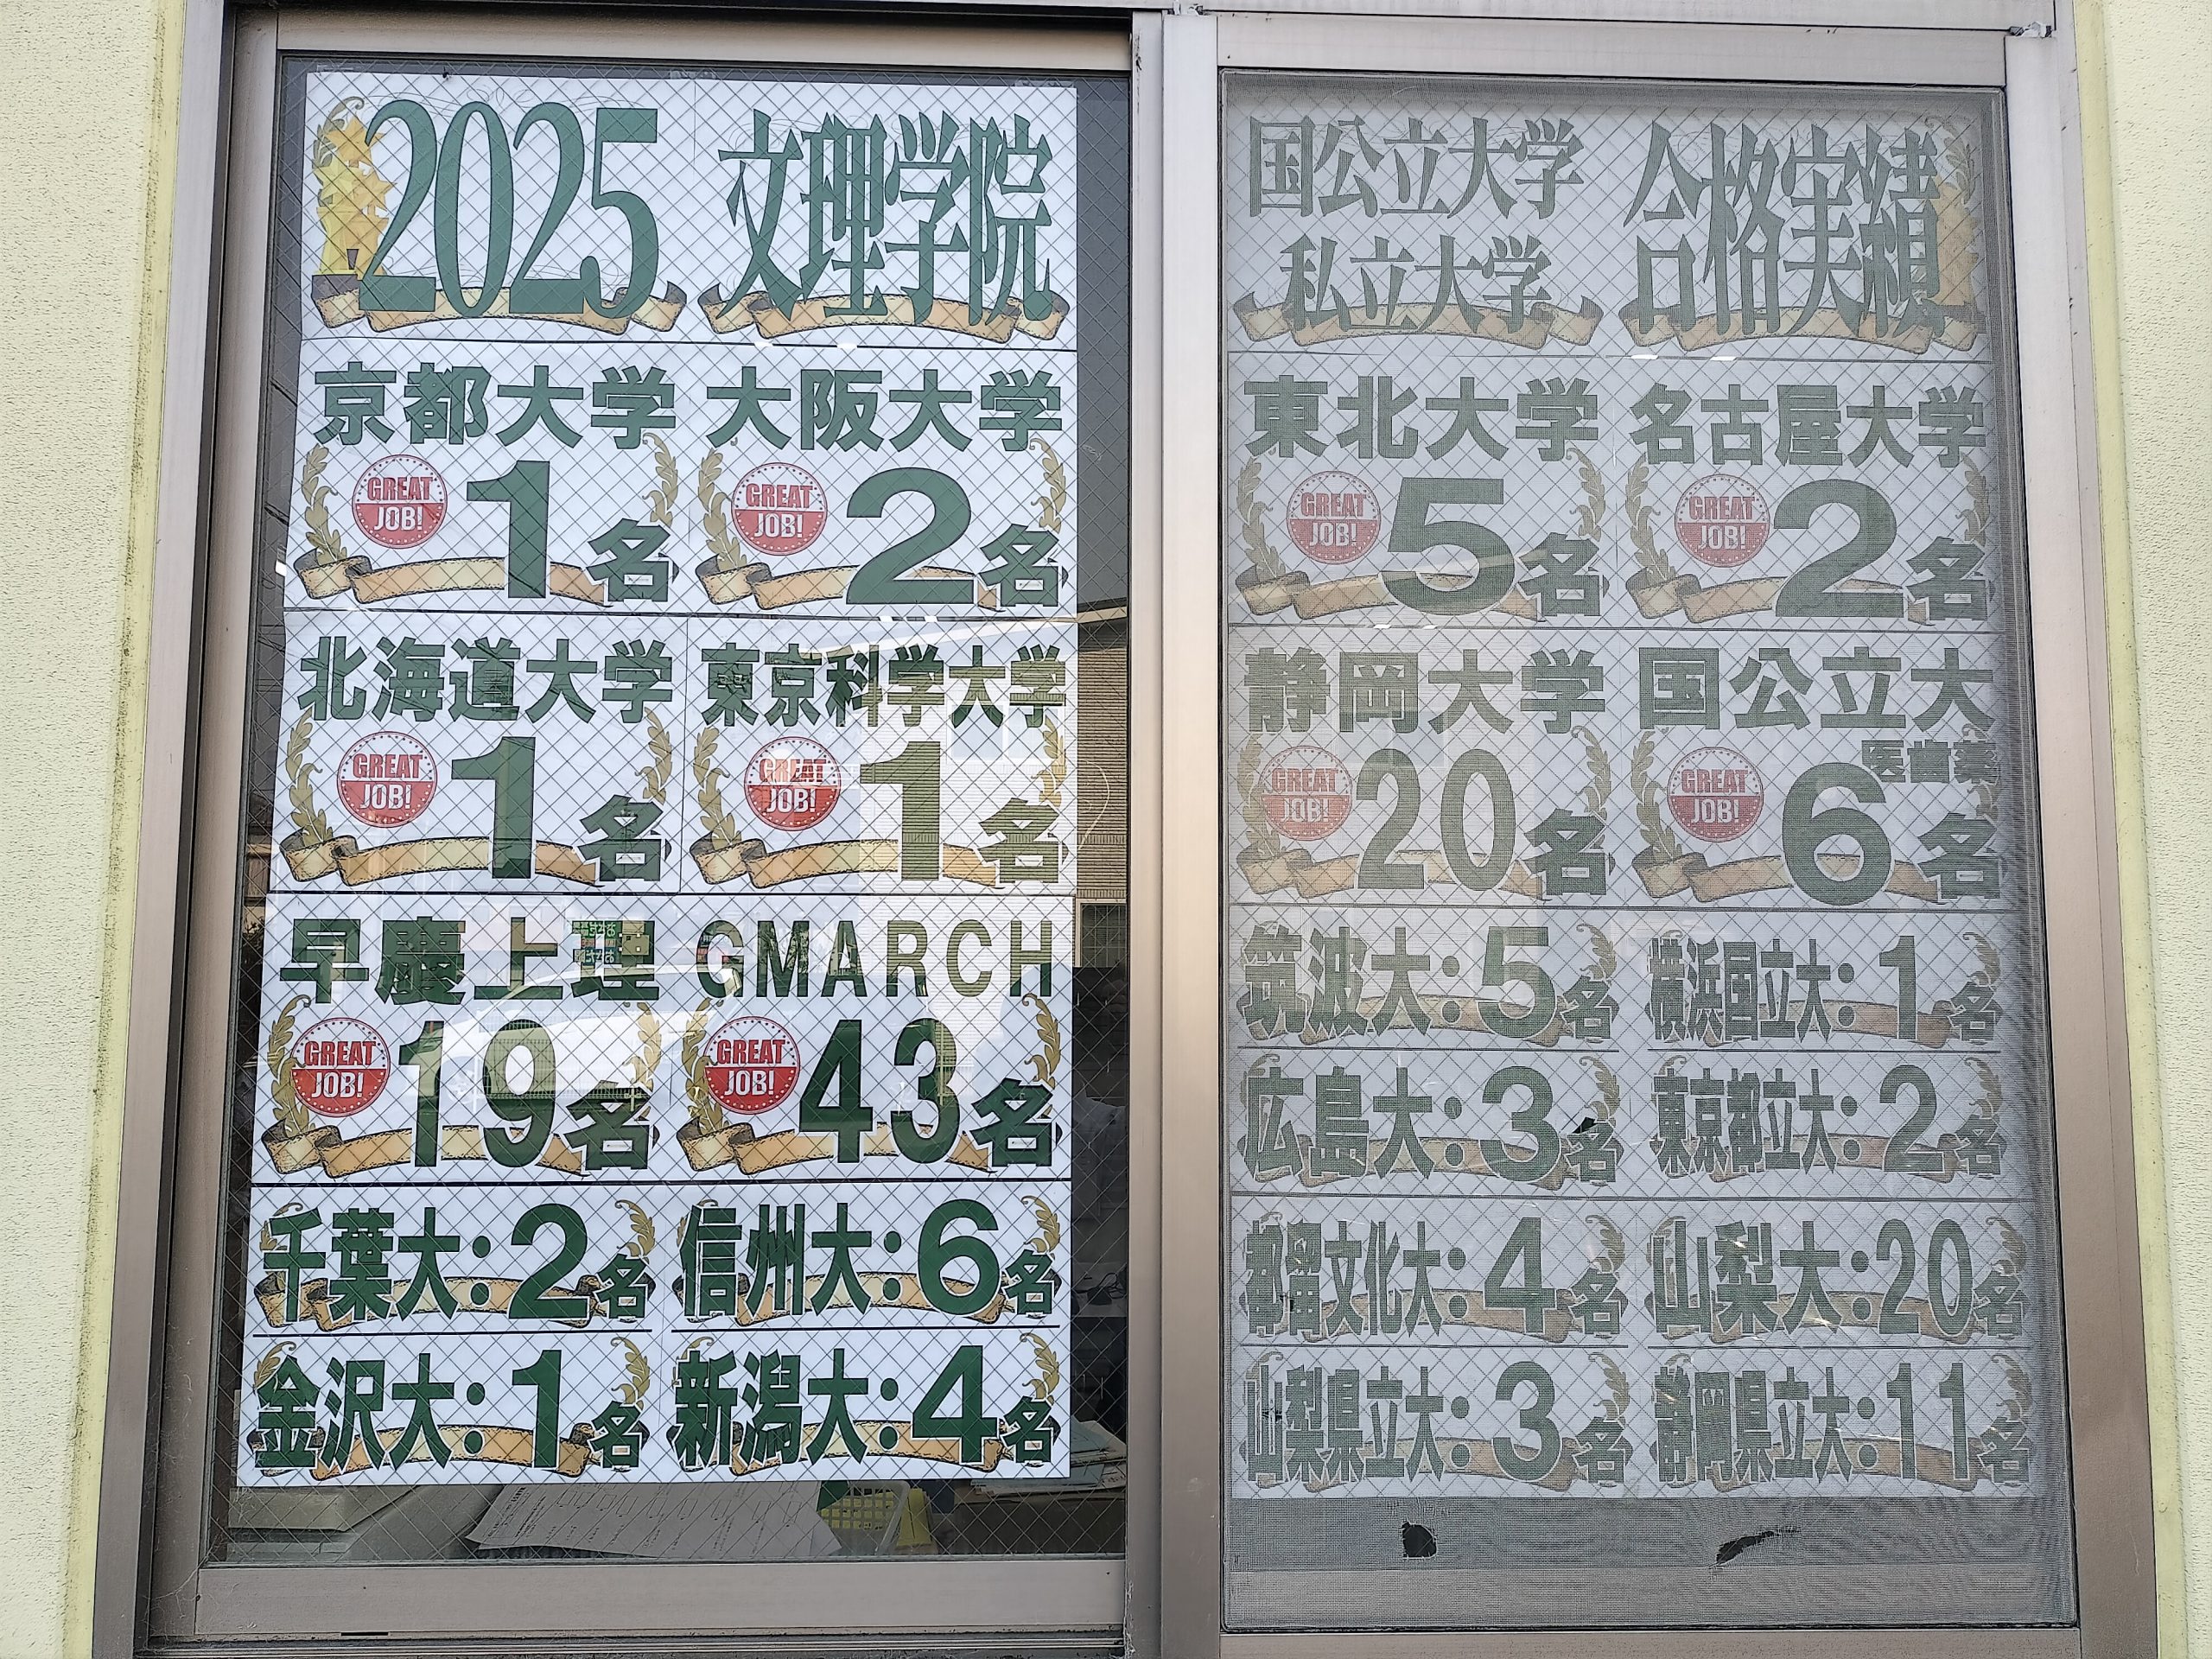 2025 文理学院
国公立大学
私立大学
合格実績
京都大学
GREAT JOB!
1名
大阪大学
GREAT JOB!
2名
東北大学
GREAT JOB!
5名
名古屋大学
GREAT JOB!
2名
北海道大学
GREAT JOB!
1名
東京科学大学
GREAT JOB!
1名
静岡大学
GREAT JOB!
20名
国公立大
医歯薬
GREAT JOB!
6名
早慶上理
GREAT JOB!
19名
GMARCH
GREAT JOB!
43名
筑波大:5名
横浜国立大:1名
広島大:3名
東京都立大:2名
千葉大:2名
信州大:6名
都留文化大:4名
山梨大:20名
金沢大:1名
新潟大:4名
山梨県立大:3名
静岡県立大:11名